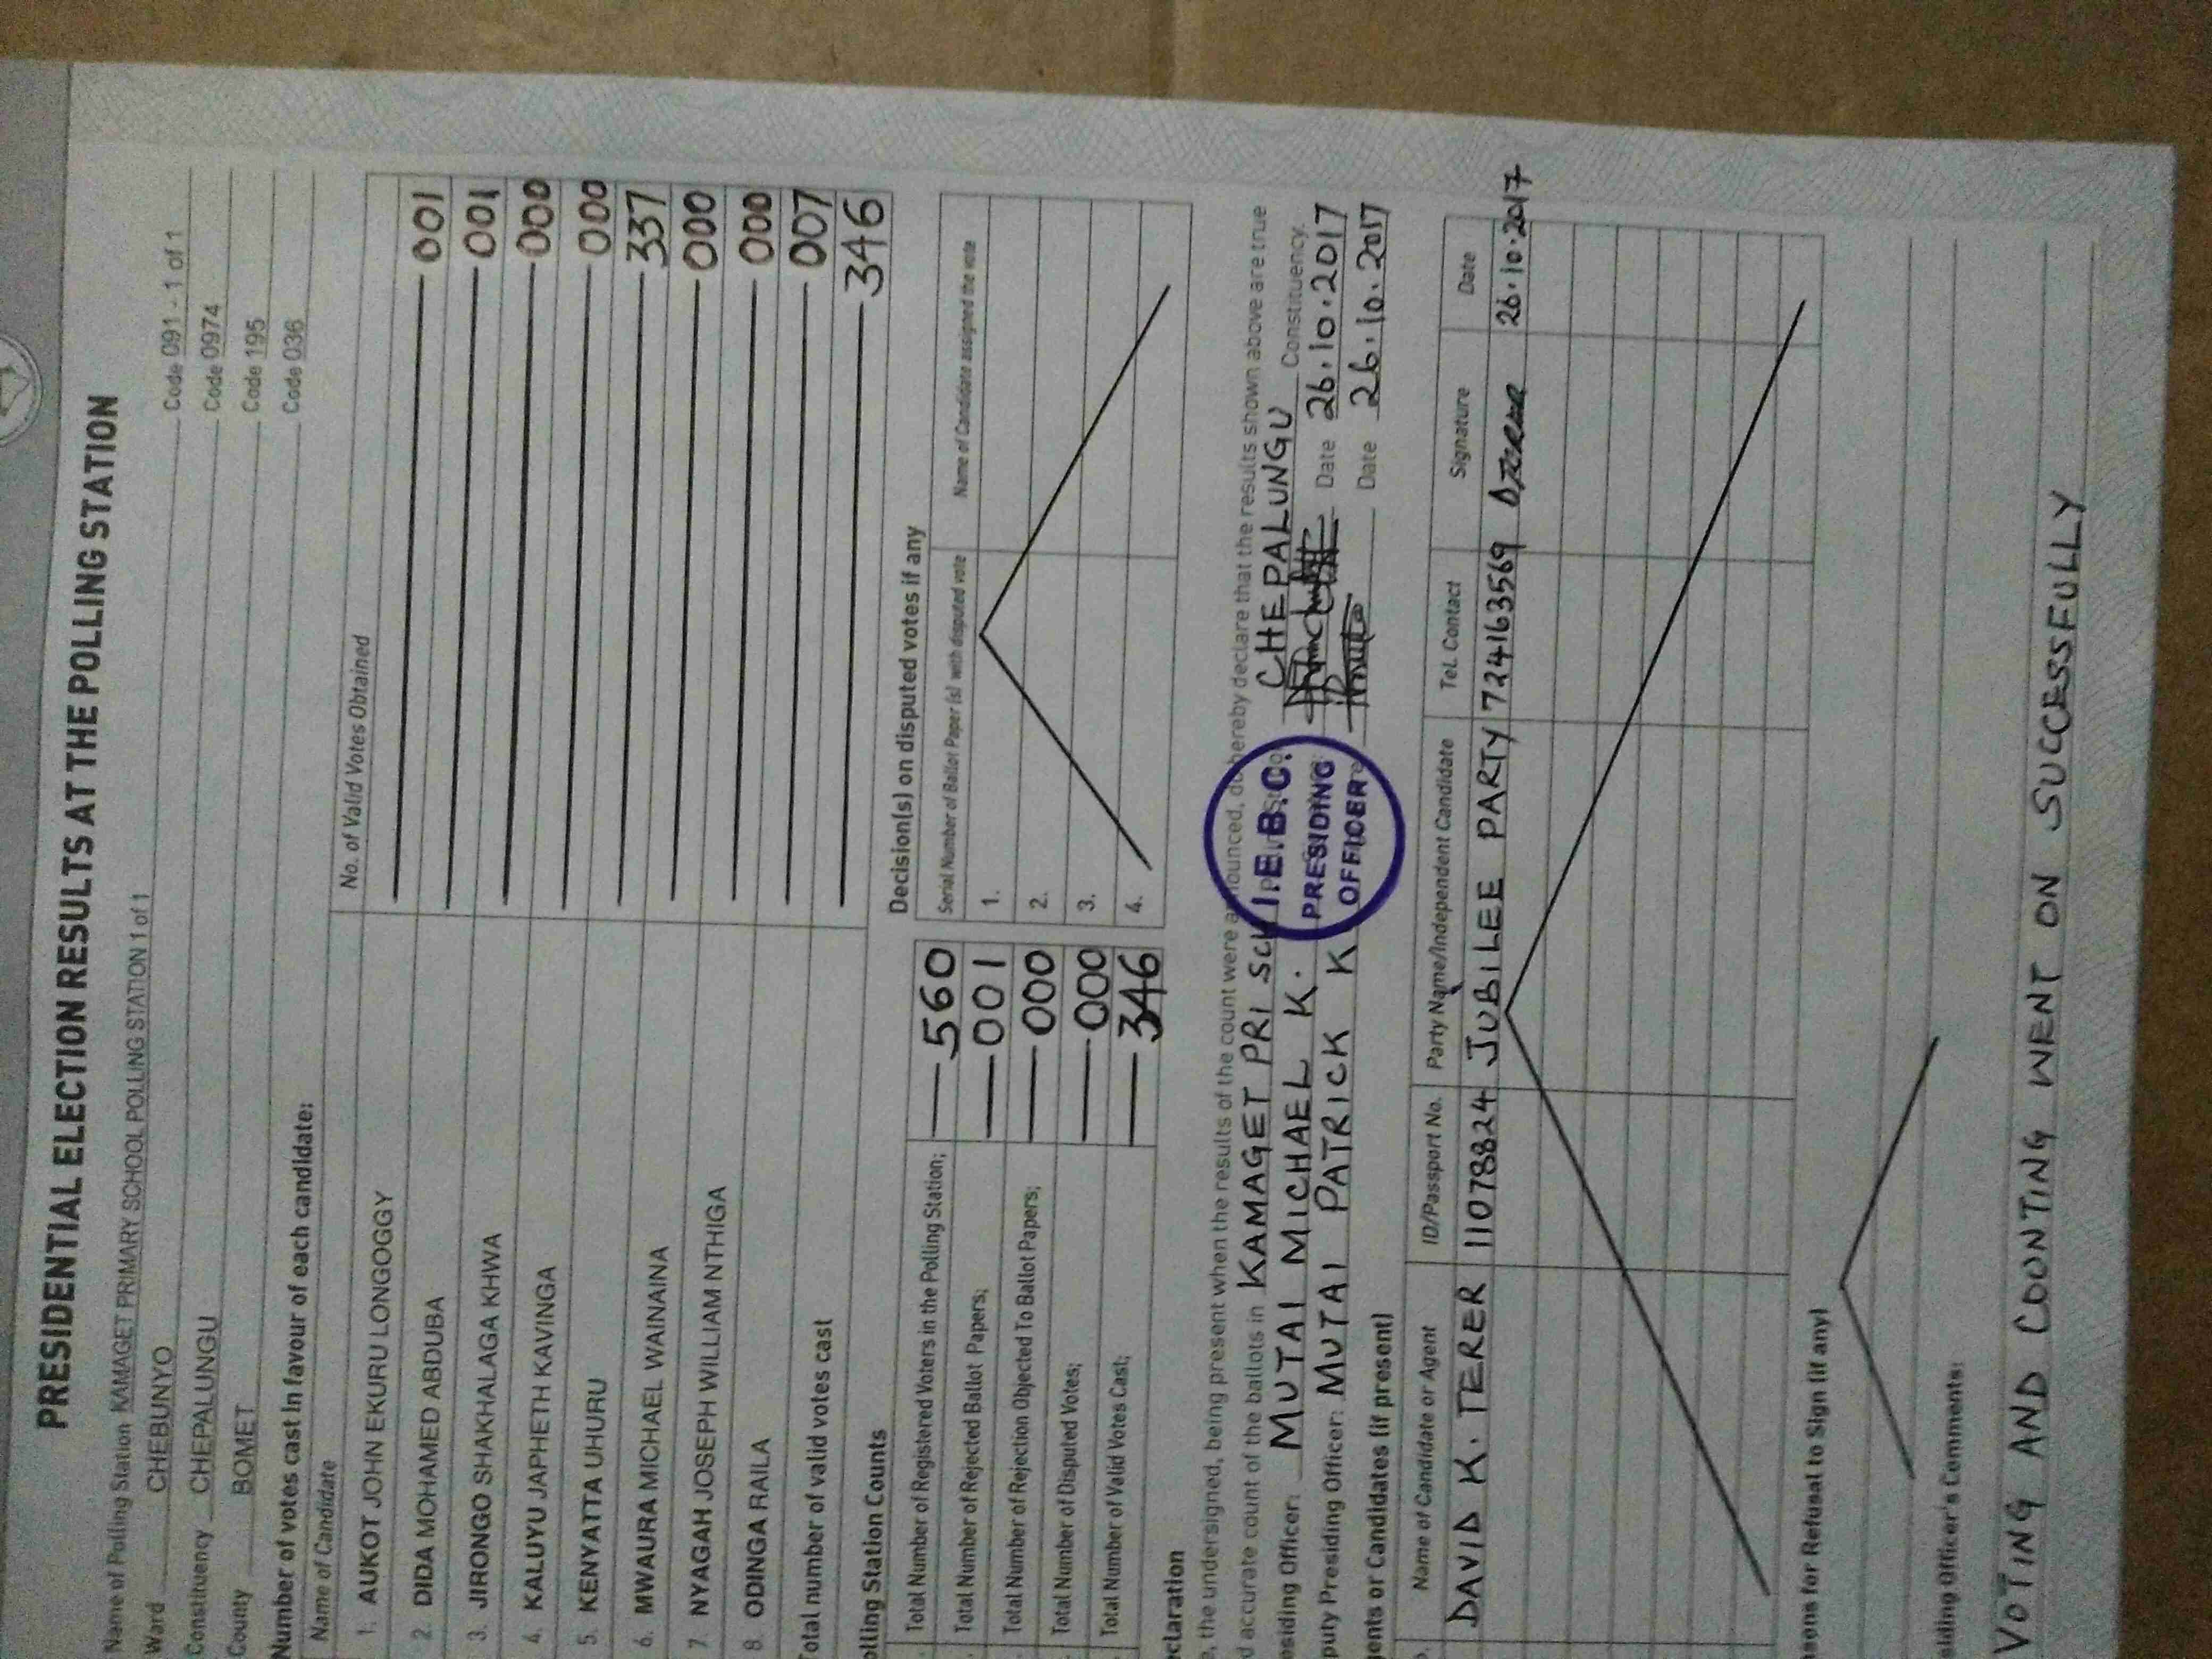 PRESIDENTIAL ELECTION RESULTS AT THE POLLING STATION
Name of Polling Station KAMAGET PRIMARY SCHOOL POLLING STATION 1 of 1 Code 091 - 1 of 1
Ward CHEBUNYO Code 0974
Constituency CHEPALUNGU Code 195
County BOMET Code 036
Number of votes cast in favour of each candidate:
Name of Candidate No. of Valid Votes Obtained
1. AUKOT JOHN EKURU LONGOGGY 001
2. DIDA MOHAMED ABDUBA 001
3. JIRONGO SHAKHALAGA KHWA 000
4. KALUYU JAPHETH KAVINGA 000
5. KENYATTA UHURU 337
6. MWAURA MICHAEL WAINAINA 000
7. NYAGAH JOSEPH WILLIAM NTHIGA 000
8. ODINGA RAILA 007
Total number of valid votes cast 346
olling Station Counts
Total Number of Registered Voters in the Polling Station; 560
Total Number of Rejected Ballot Papers; 001
Total Number of Rejection Objected To Ballot Papers; 000
Total Number of Disputed Votes; 000
Total Number of Valid Votes Cast; 346
Decision(s) on disputed votes if any
Serial Number of Ballot Paper (s) with disputed vote Name of Candidate assigned the vote
1.
2.
3.
4.
eclaration
e, the undersigned, being present when the results of the count were announced, do hereby declare that the results shown above are true
d accurate count of the ballots in KAMAGET PRI SCH CHEPALUNGU Constituency.
esiding Officer: MUTAI MICHAEL K. Date 26.10.2017
puty Presiding Officer: MUTAI PATRICK K Date 26.10.2017
I.E.B.C.
PRESIDING
OFFICER
gents or Candidates (if present)
Name of Candidate or Agent ID/Passport No. Party Name/Independent Candidate Tel. Contact Signature Date
DAVID K. TERER 11078824 JUBILEE PARTY 724163569 26.10.2017
sons for Refusal to Sign (if any)
siding Officer's Comments:
VOTING AND COUNTING WENT ON SUCCESSFULLY